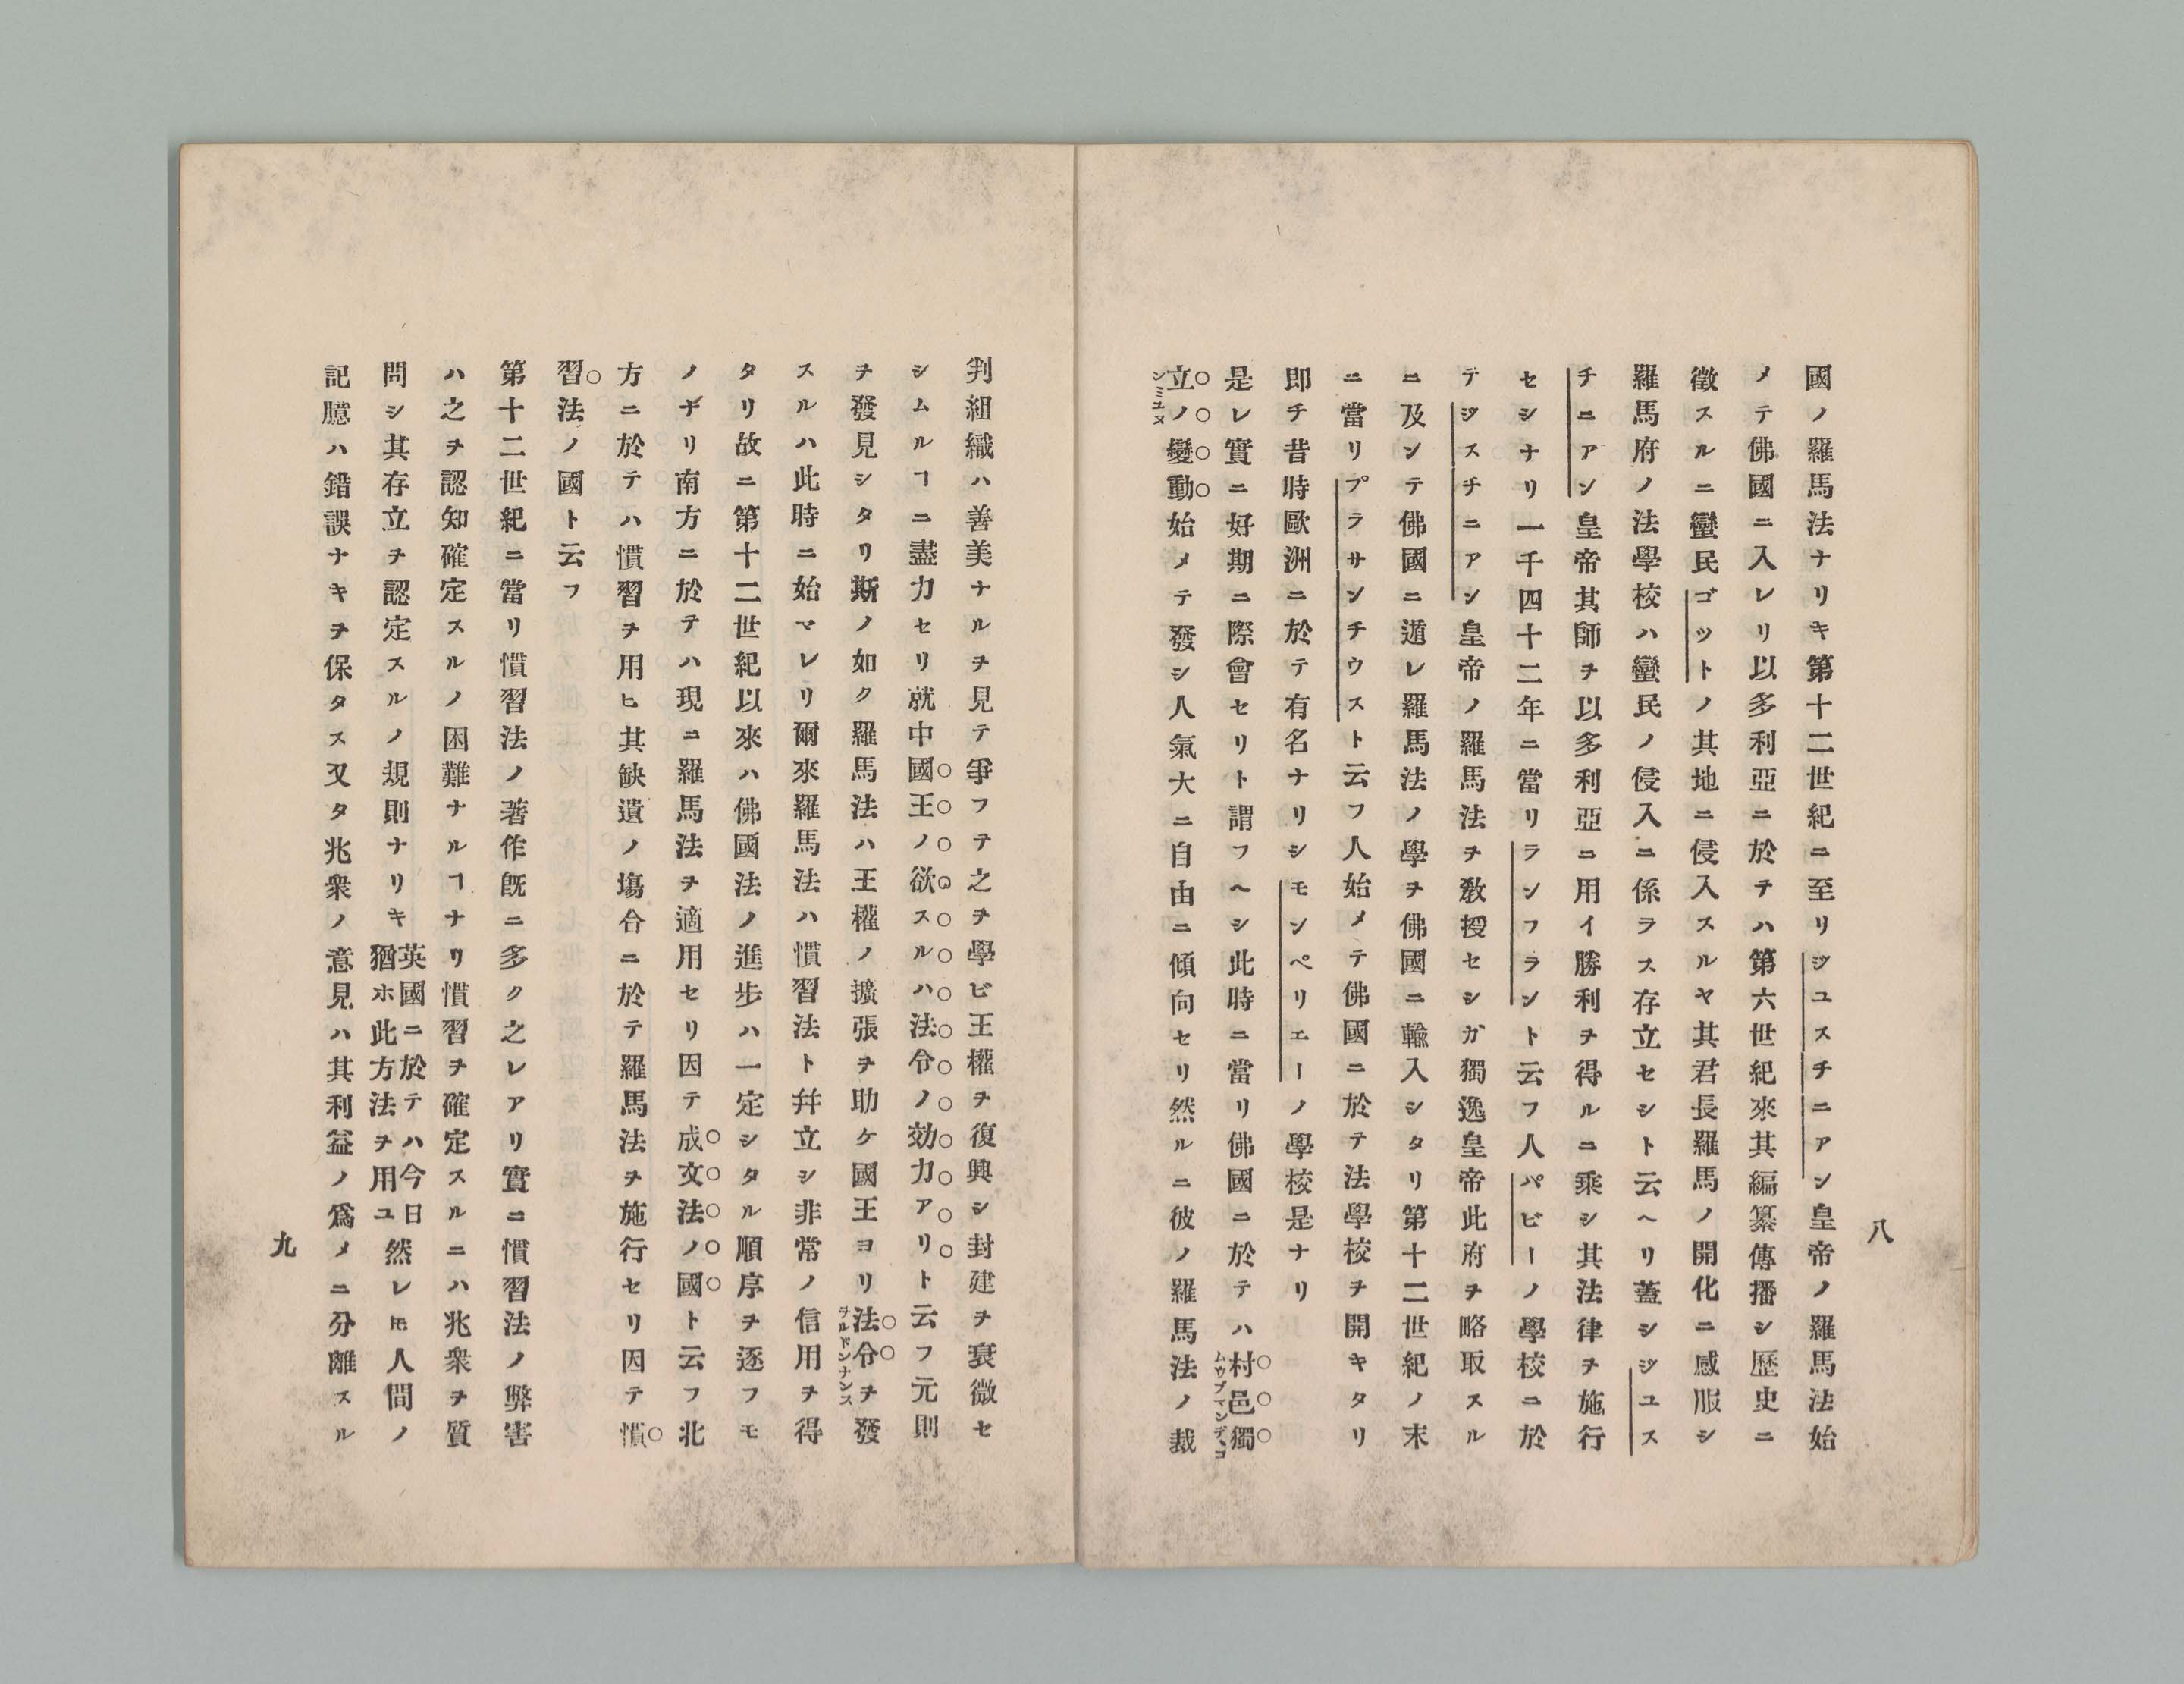 八
國ノ羅馬法ナリキ第十二世紀ニ至リジユスチニアン皇帝ノ羅馬法始
メテ佛國ニ入レリ以多利亞ニ於テハ第六世紀來其編纂傳播シ歷史ニ
徵スルニ蠻民ゴツトノ其地ニ侵入スルヤ其君長羅馬ノ開化ニ感服シ
羅馬府ノ法學校ハ蠻民ノ侵入ニ係ラス存立セシト云ヘリ蓋シジユス
チニアン皇帝其師ヲ以多利亞ニ用イ勝利ヲ得ルニ乘シ其法律ヲ施行
セシナリ一千四十二年ニ當リランフラント云フ人パビーノ學校ニ於
テジスチニアン皇帝ノ羅馬法ヲ敎授セシガ獨逸皇帝此府ヲ略取スル
ニ及ンテ佛國ニ遁レ羅馬法ノ學ヲ佛國ニ輸入シタリ第十二世紀ノ末
ニ當リプラサンチウスト云フ人始メテ佛國ニ於テ法學校ヲ開キタリ
即チ昔時歐洲ニ於テ有名ナリシモンペリエーノ學校是ナリ
是レ實ニ好期ニ際會セリト謂フヘシ此時ニ當リ佛國ニ於テハ村邑獨
ムウブマンデ、コ
立ノ變動始メテ發シ人氣大ニ自由ニ傾向セリ然ルニ彼ノ羅馬法ノ裁
ンミユヌ
判組織ハ善美ナルヲ見テ爭フテ之ヲ學ビ王權ヲ復興シ封建ヲ衰微セ
シムルヿニ盡力セリ就中國王ノ欲スルハ法令ノ効力アリト云フ元則
ヲ發見シタリ斯ノ如ク羅馬法ハ王權ノ擴張ヲ助ケ國王ヨリ法令ヲ發
ヲルドンナンス
スルハ此時ニ始マレリ爾來羅馬法ハ慣習法ト幷立シ非常ノ信用ヲ得
タリ故ニ第十二世紀以來ハ佛國法ノ進步ハ一定シタル順序ヲ逐フモ
ノナリ南方ニ於テハ現ニ羅馬法ヲ適用セリ因テ成文法ノ國ト云フ北
方ニ於テハ慣習ヲ用ヒ其缺遺ノ塲合ニ於テ羅馬法ヲ施行セリ因テ慣
習法ノ國ト云フ
第十二世紀ニ當リ慣習法ノ著作既ニ多ク之レアリ實ニ慣習法ノ弊害
ハ之ヲ認知確定スルノ困難ナルヿナリ慣習ヲ確定スルニハ兆衆ヲ質
問シ其存立ヲ認定スルノ規則ナリキ英國ニ於テハ今日猶ホ此方法ヲ用ユ然レ𪜈人間ノ
記臆ハ錯誤ナキヲ保タス又タ兆衆ノ意見ハ其利益ノ爲メニ分離スル
九